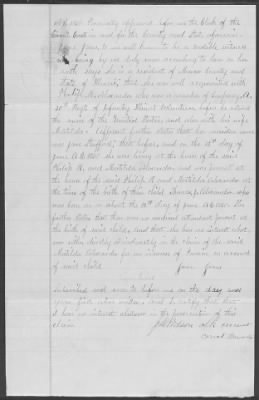 Personally appeared before me the Clerk of the
Circuit Court in and for the County and State aforesaid
Jane Jones to me well known to be a credible witness
who being by me duly sworn according to law on her
oath says she is a resident of Mercer County and
State of Illinois, that she was well acquainted with
Philip Alexander who was a member of Company
30th Regt of Infantry Illinois Volunteers before he entered
the army of the United States and also with his wife
Matilda. Affiant further states that her maiden name
was Jane Stafford that before, and on the 18th day of
June A.D. 1861 she was living at the house of the said
Philip and Matilda Alexander and was present at
the house of the said Philip and Matilda Alexander at
the time of the birth of their child Alexander who
was born on or about the 18th day of June A.D. 1861. She
further states that there was no medical attendant present at
the birth of said child, and that she has no interest what-
ever either directly or indirectly in the claim of the said
Matilda Alexander for an increase of Pension on account
of said child. Jane Jones
Subscribed and sworn to before me on the day and
year first above written, and I certify that I
have no interest whatever in the prosecution of this
claim.
Clerk
Circuit